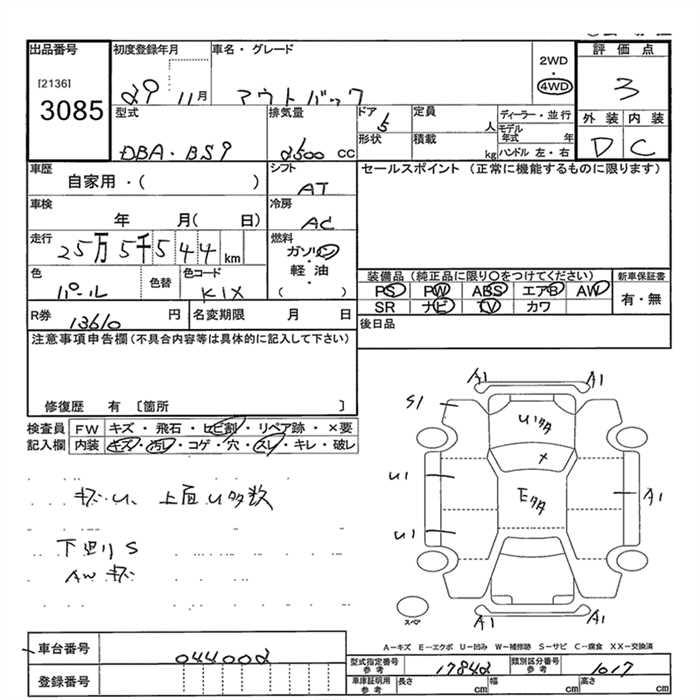 出品番号
[2136]
3085
初度登録年月
29 11月
車名・グレード
アウトバック
2WD
・
4WD
評価点
3
外装 内装
D C
型式
DBA・BS9
排気量
2500 CC
ドア
5
形状
定員
人
積載
kg
ディーラー・並行
モデル年式 年
ハンドル 左・右
車歴
自家用・( )
シフト
AT
セールスポイント (正常に機能するものに限ります)
車検
年 月( 日)
冷房
AC
走行
25万5千544km
燃料
ガソリン
・
軽油
( )
色
パール
色替
色コード
K1X
装備品(純正品に限り〇をつけてください)
PS PW ABS エアB AW
SR ナビ TV カワ
新車保証書
有・無
R券
13610 円
名変期限 月 日
後日品
注意事項申告欄(不具合内容等は具体的に記入して下さい)
修復歴 有 〔箇所 〕
検査員記入欄
FW キズ・飛石・ヒビ割・リペア跡・×要
内装 キズ・汚レ・コゲ・穴・スレ・キレ・破レ
キズ・U、上面U多数
下廻りS
AW キズ
A1 A1
S1
Uタタ
×
U1
Eタタ
A1
U1
A1 A1
スペア
A-キズ E-エクボ U-凹み W-補修跡 S-サビ C-腐食 XX-交換済
車台番号
044002
登録番号
型式指定番号 参考
17842
類別区分番号 参考
1017
車庫証明用 参考
長さ cm 幅 cm 高さ cm